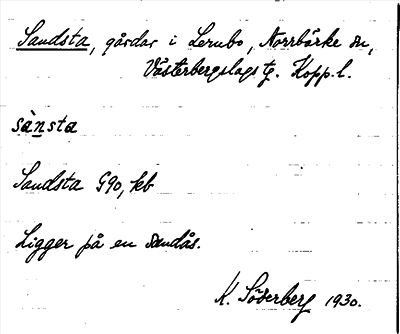 Sandsta, gårdar i Lernbo, Norrbärke sn,
Västerbergslags tg. Kopp. l.
sànsta
Sandsta G90, kb
Ligger på en sandås.
K. Söderberg 1930.